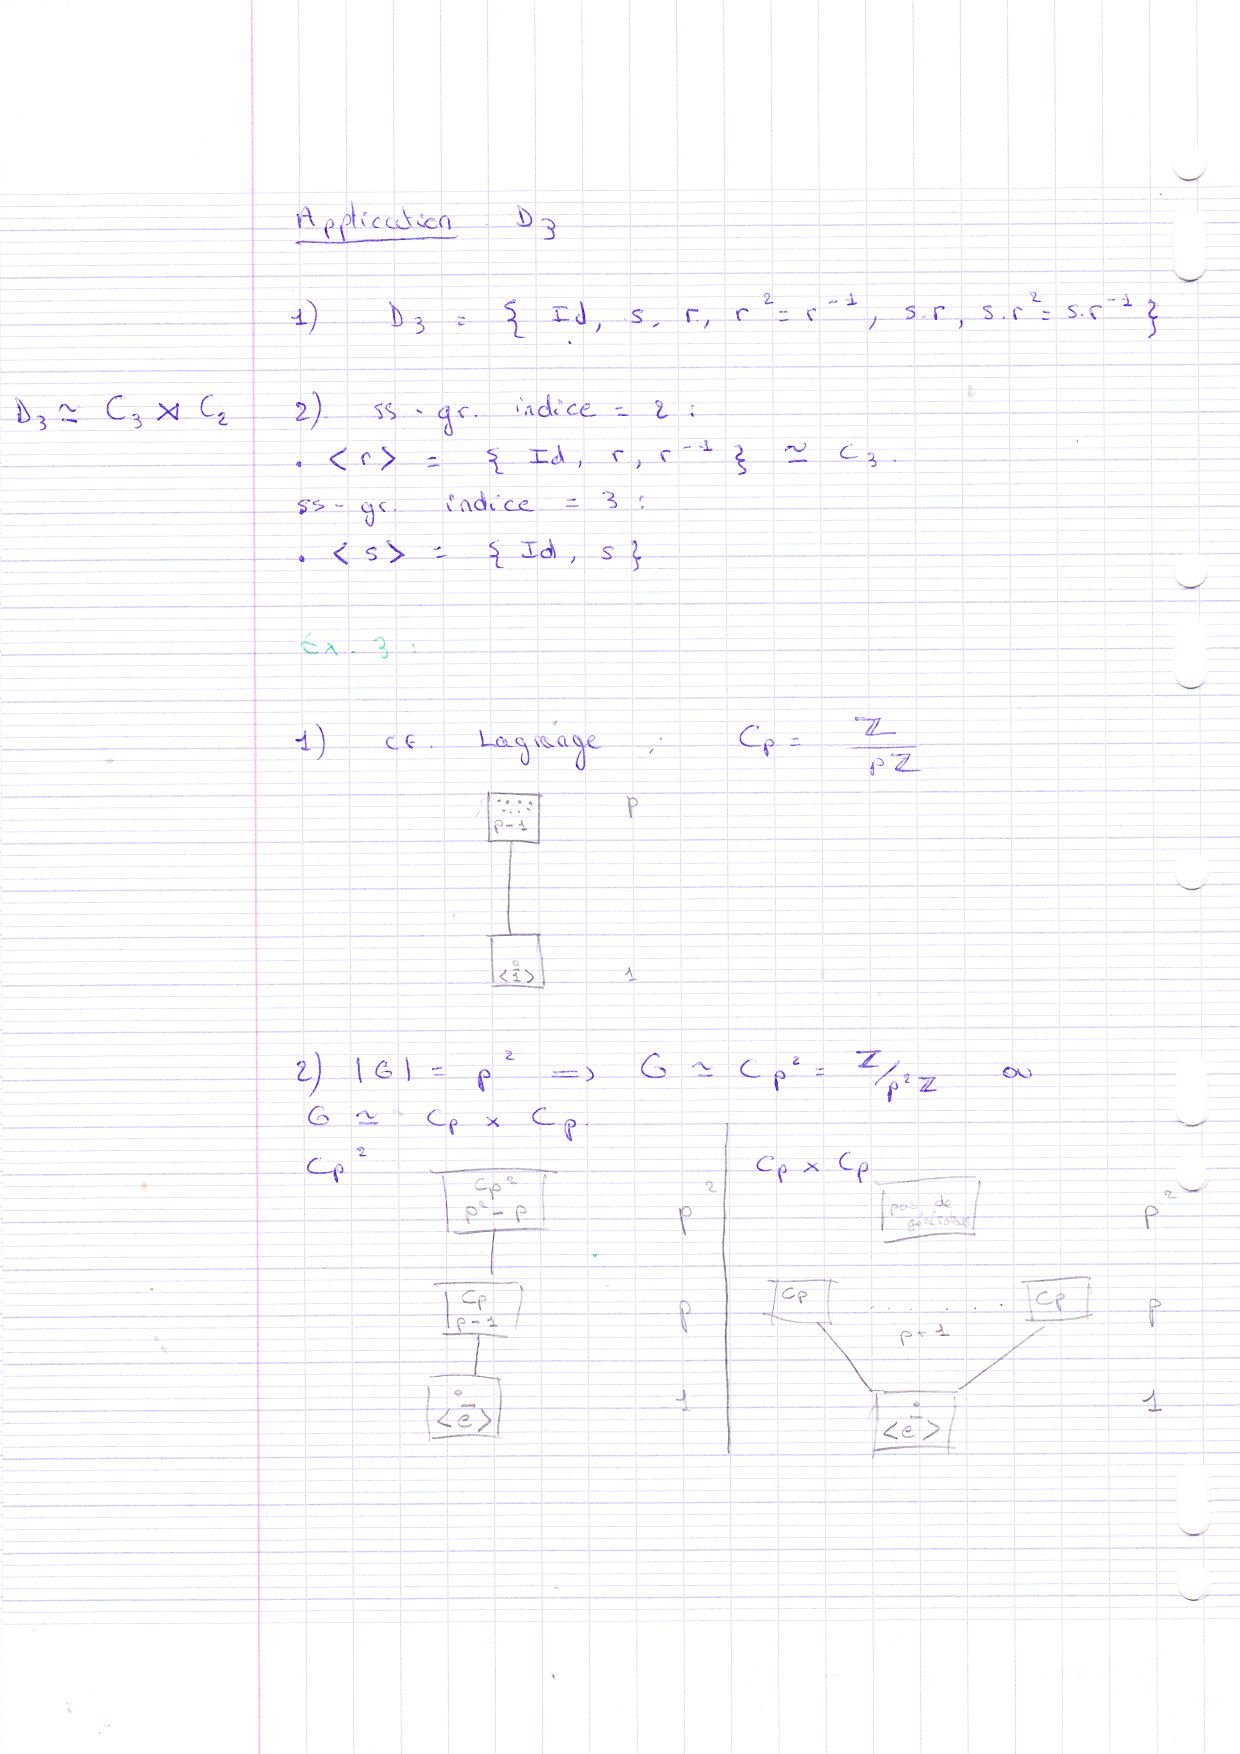 Application D₃
1) D₃ = { Id, s, r, r² = r⁻¹, s.r, s.r² = s.r⁻¹ }
D₃ ≃ C₃ ⋊ C₂
2) ss-gr. indice = 2 :
. <r> = { Id, r, r⁻¹ } ≃ C₃.
ss-gr. indice = 3 :
. <s> = { Id, s }
Ex. 3 :
1) cf. Lagrange : Cp = Z / pZ
p-1 p
<1> 1
2) |G| = p² ⟹ G ≃ Cp² = Z/p²Z ou
G ≃ Cp × Cp.
Cp²
Cp²
p² - p p²
Cp
p-1 p
<e> 1
Cp × Cp
de p²
Cp . . . . . . Cp p
p+1
<e> 1